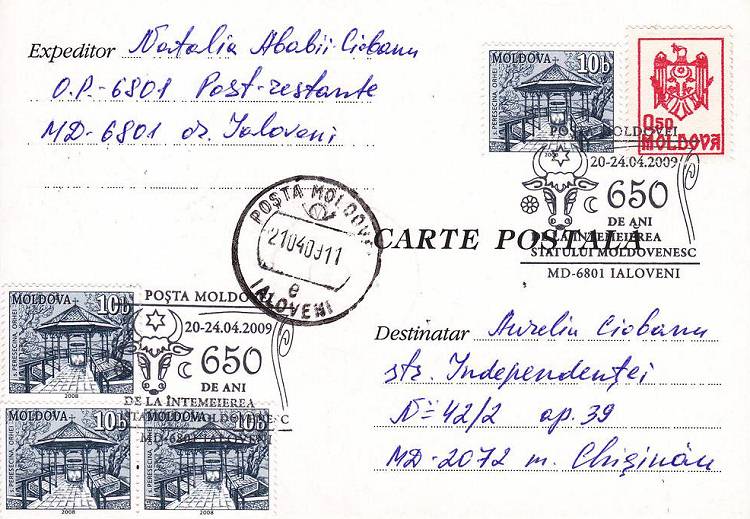 Expeditor Natalia Ababii-Ciobanu
O.P.-6801 Post-restante
MD-6801 or. Ialoveni
MOLDOVA 10b
s. PERESECINA ORHEI
2008
0,50
MOLDOVA
POŞTA MOLDOVEI
20-24.04.2009
650
DE ANI
DE LA ÎNTEMEIEREA
STATULUI MOLDOVENESC
MD-6801 IALOVENI
POŞTA MOLDOVEI
21040911
e
IALOVENI
CARTE POSTALĂ
Destinatar Aureliu Ciobanu
str. Independenţei
№ 42/2 ap. 39
MD-2072 m. Chişinău
MOLDOVA 10b
s. PERESECINA ORHEI
2008
POŞTA MOLDO
20-24.04.2009
650
DE ANI
DE LA ÎNTEMEIEREA
STATULUI MOLDOVENESC
MD-6801 IALOVENI
MOLDOVA 10b
s. PERESECINA ORHEI
2008
MOLDOVA 10b
s. PERESECINA ORHEI
2008